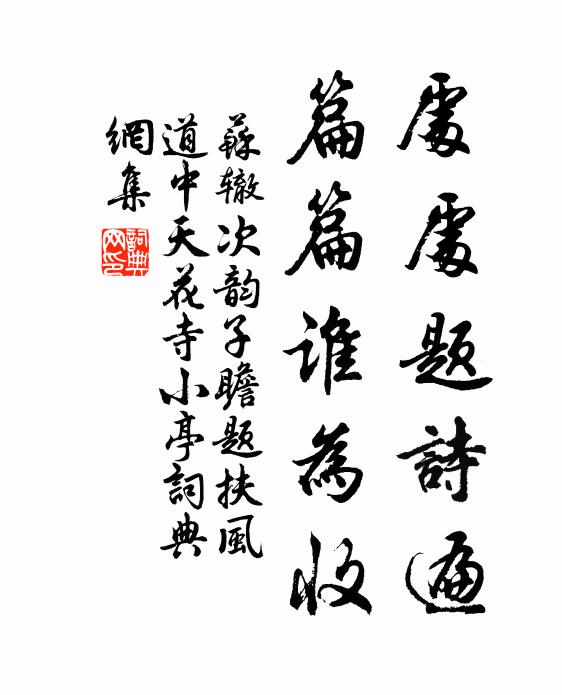 處處題詩遍
篇篇誰為收
蘇辙次韵子瞻題扶風
道中天花寺小亭詞典
網集
詞典
网印